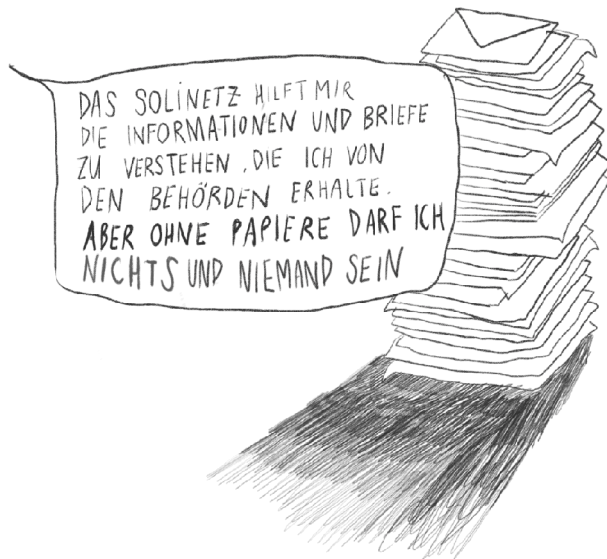 DAS SOLINETZ HILFT MIR
DIE INFORMATIONEN UND BRIEFE
ZU VERSTEHEN, DIE ICH VON
DEN BEHÖRDEN ERHALTE.
ABER OHNE PAPIERE DARF ICH
NICHTS UND NIEMAND SEIN